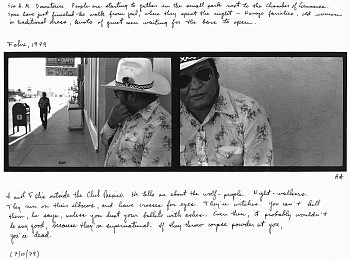 5:00 A.M. Downtown. People are starting to gather in the small park next to the chamber of commerce.
Some have just finished the walk from jail, where they spent the night – Navajo families, old women
in traditional dress, knots of quiet men waiting for the bars to open.
Felix, 1979
A and Felix outside the Club Mexico. He tells me about the wolf-people. Night-walkers.
They run on their elbows, and have crosses for eyes. They're witches. You can't kill
them, he says, unless you dust your bullets with ashes. Even then, it probably wouldn't
do any good, because they're supernatural. If they throw corpse powder at you,
you're dead.
(7/11/79)